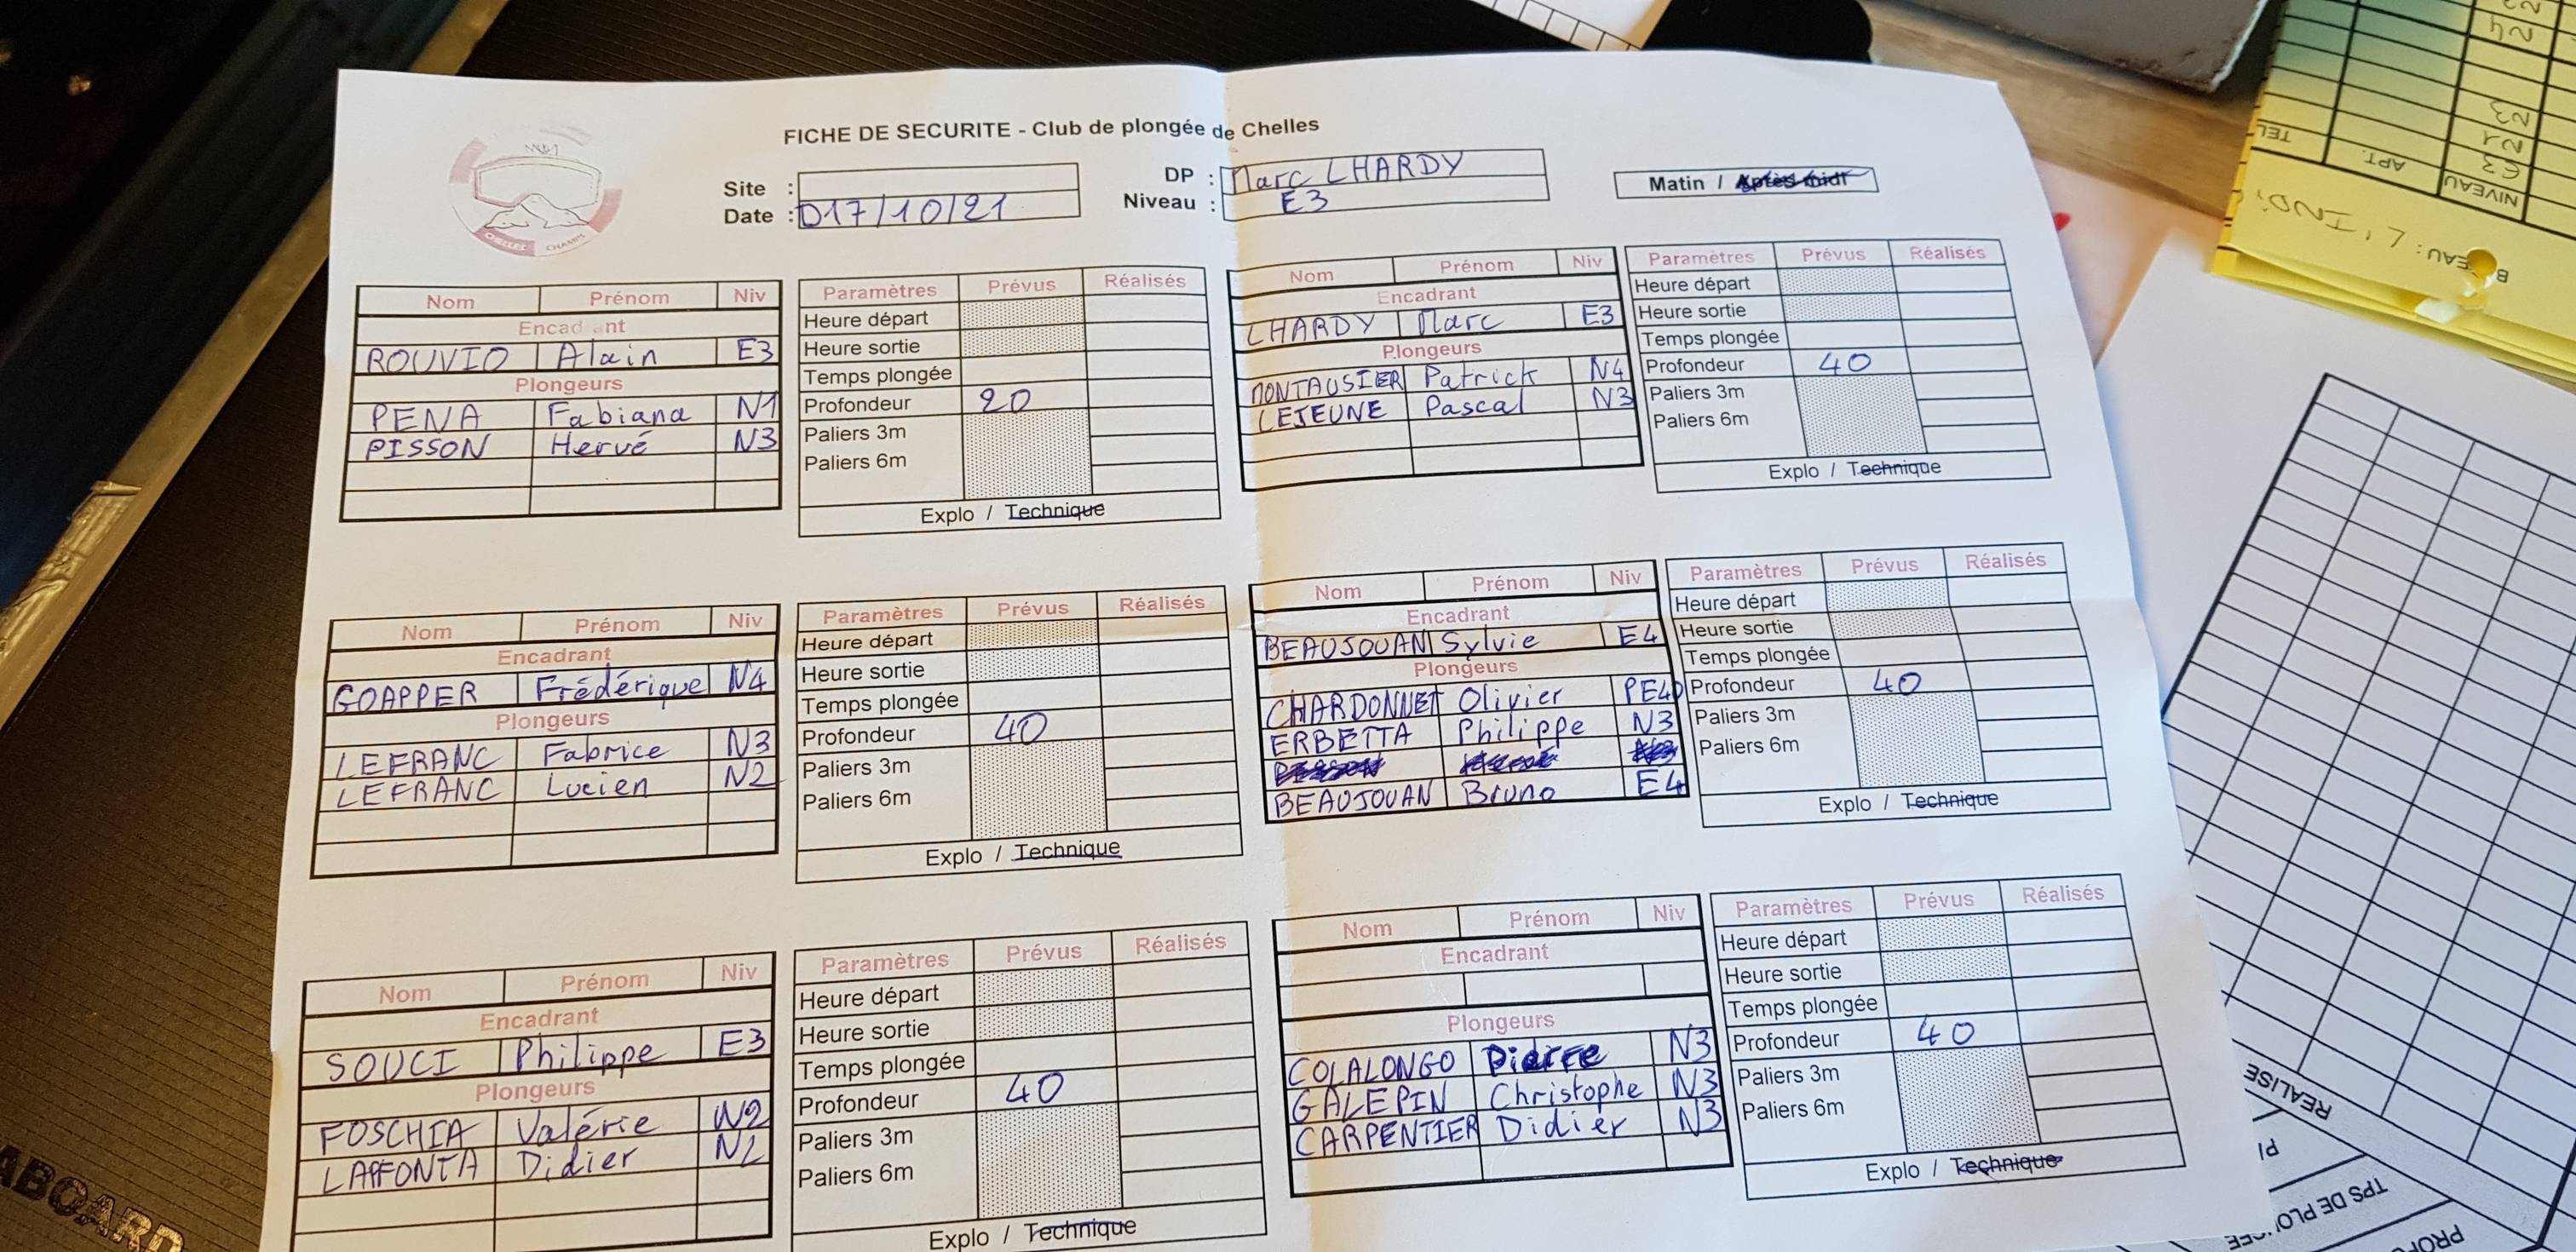 FICHE DE SECURITE - Club de plongée de Chelles
Site :
Date : 017/10/21
DP : Marc LHARDY
Niveau : E3
Matin / Après midi
CHELLES
Nom Prénom Niv
Encad ant
ROUVIO Alain E3
Plongeurs
PENA Fabiana N1
PISSON Hervé N3
Paramètres Prévus Réalisés
Heure départ
Heure sortie
Temps plongée
Profondeur 20
Paliers 3m
Paliers 6m
Explo / Technique
Nom Prénom Niv
Encadrant
LHARDY Marc E3
Plongeurs
MONTAUSIER Patrick N4
LEJEUNE Pascal N3
Paramètres Prévus Réalisés
Heure départ
Heure sortie
Temps plongée
Profondeur 40
Paliers 3m
Paliers 6m
Explo / Technique
Nom Prénom Niv
Encadrant
GOAPPER Frédérique N4
Plongeurs
LEFRANC Fabrice N3
LEFRANC Lucien N2
Paramètres Prévus Réalisés
Heure départ
Heure sortie
Temps plongée
Profondeur 40
Paliers 3m
Paliers 6m
Explo / Technique
Nom Prénom Niv
Encadrant
BEAUJOUAN Sylvie E4
Plongeurs
CHARDONNET Olivier PE40
ERBETTA Philippe N3
BEAUJOUAN Bruno E4
Paramètres Prévus Réalisés
Heure départ
Heure sortie
Temps plongée
Profondeur 40
Paliers 3m
Paliers 6m
Explo / Technique
Nom Prénom Niv
Encadrant
SOUCI Philippe E3
Plongeurs
FOSCHIA Valérie N2
Didier
Paramètres Prévus Réalisés
Heure départ
Heure sortie
Temps plongée
Profondeur 40
Paliers 3m
Paliers 6m
Explo / Technique
Nom Prénom Niv
Encadrant
Plongeurs
COLALONGO Pierre N3
GALEPIN Christophe N3
CARPENTIER Didier N3
Paramètres Prévus Réalisés
Heure départ
Heure sortie
Temps plongée
Profondeur 40
Paliers 3m
Paliers 6m
Explo / Technique
TEL
APT.
NIVEAU
E3
N1
N3
N4
REALISE
TPS DE PLO
ABOARD